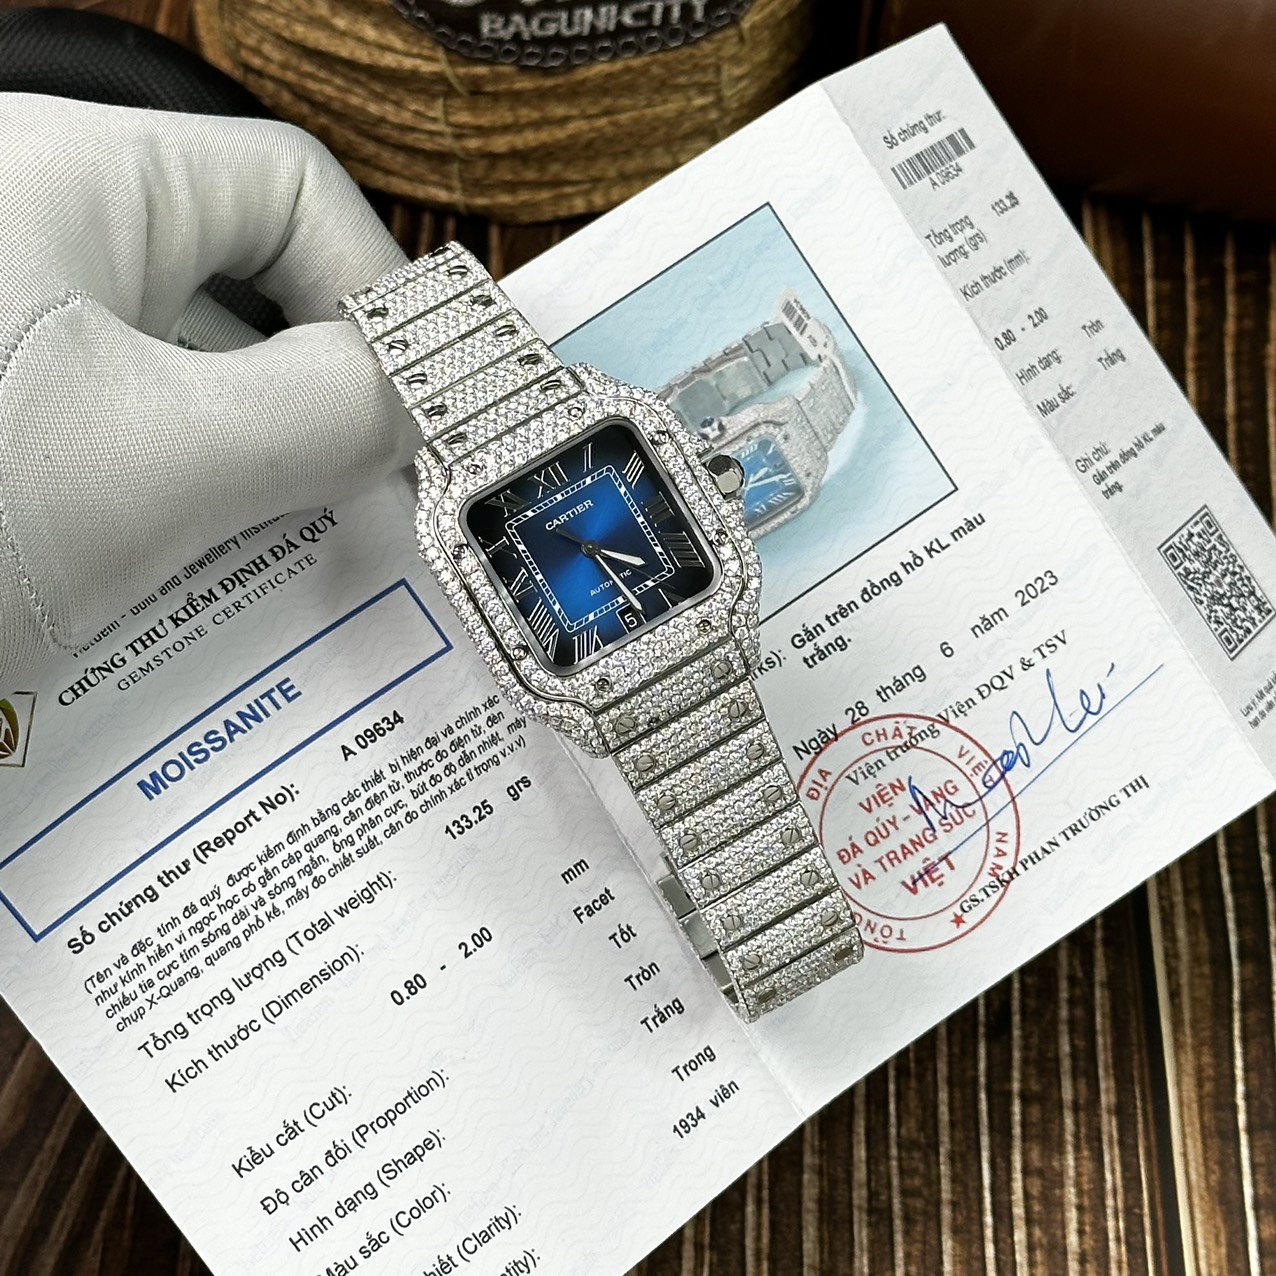 BAGUNI-CITY
CARTIER
AUTOMATIC
5
CHỨNG THƯ KIỂM ĐỊNH ĐÁ QUÝ
GEMSTONE CERTIFICATE
MOISSANITE
Số chứng thư (Report No): A 09634
(Tên và đặc tính đá quý được kiểm định bằng các thiết bị hiện đại và chính xác
như kính hiển vi ngọc học có gắn cáp quang, cân điện tử, thước đo điện tử, đèn
chiếu tia cực tím sóng dài và sóng ngắn, ống phân cực, bút đo độ dẫn nhiệt, máy
chụp X-Quang, quang phổ kế, máy đo chiết suất, cân đo chính xác tỉ trọng v.v.v)
Tổng trọng lượng (Total weight): 133.25 grs
Kích thước (Dimension): 0.80 - 2.00 mm
Kiểu cắt (Cut): Facet
Độ cân đối (Proportion): Tốt
Hình dạng (Shape): Tròn
Màu sắc (Color): Trắng
(Clarity): Trong
1934 viên
Gắn trên đồng hồ KL màu
trắng.
Ngày 28 tháng 6 năm 2023
Viện trưởng Viện ĐQV & TSV
VIỆN
ĐÁ QUÝ - VÀNG
VÀ TRANG SỨC
VIỆT
GS.TSKH PHAN TRƯỜNG THỊ
Số chứng thư:
A 09634
Tổng trọng 133.25
lượng: (grs)
Kích thước (mm):
0.80 - 2.00
Hình dạng: Tròn
Màu sắc: Trắng
Ghi chú:
Gắn trên đồng hồ KL màu
trắng.